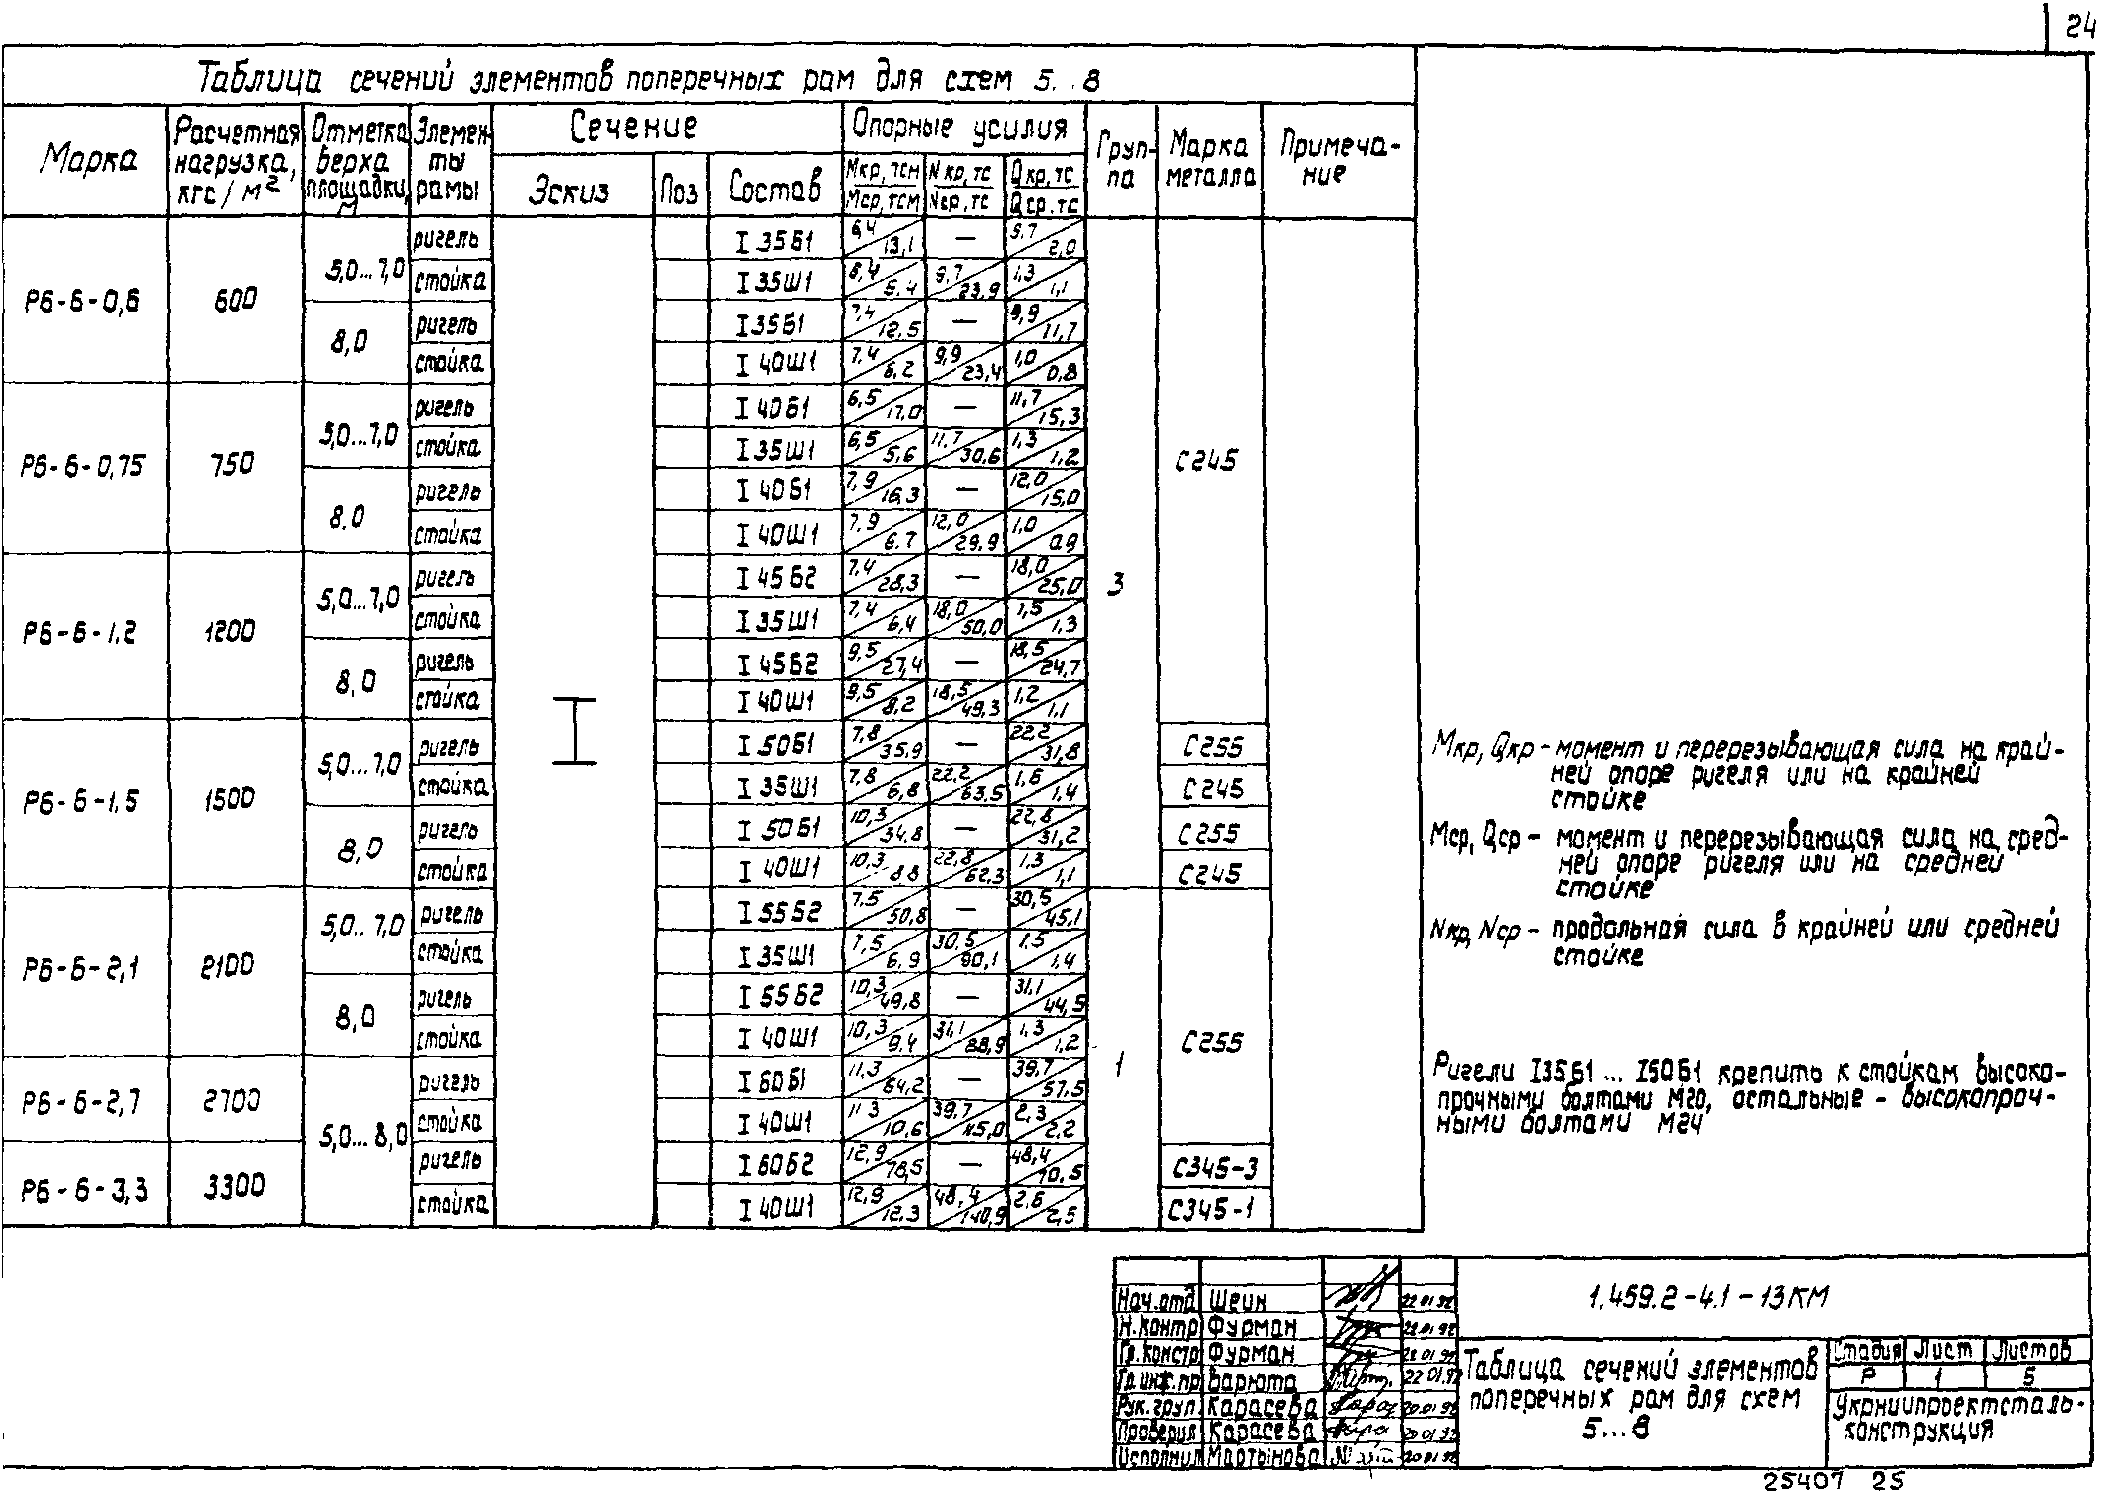 24
Таблица сечений элементов поперечных рам для схем 5...8
Марка
Расчетная нагрузка, кгс/м²
Отметка верха площадки, м
Элементы рамы
Сечение
Эскиз Поз Состав
Опорные усилия
Мкр, тсм / Мср, тсм Nкр, тс / Nср, тс Qкр, тс / Qср, тс
Группа
Марка металла
Примечание
Р6-6-0,6 600 5,0...7,0 ригель I 35Б1 6,4/13,1 — 9,7/2,0 3 С245
стойка I 35Ш1 6,4/5,4 9,7/23,9 1,3/1,1
8,0 ригель I 35Б1 7,4/12,5 — 9,9/11,7
стойка I 40Ш1 7,4/6,2 9,9/23,4 1,0/0,8
Р6-6-0,75 750 5,0...7,0 ригель I 40Б1 6,5/17,0 — 11,7/15,3
стойка I 35Ш1 6,5/5,6 11,7/30,6 1,3/1,2
8,0 ригель I 40Б1 7,9/16,3 — 12,0/15,0
стойка I 40Ш1 7,9/6,7 12,0/29,9 1,0/0,9
Р6-6-1,2 1200 5,0...7,0 ригель I 45Б2 7,4/28,3 — 18,0/25,0
стойка I 35Ш1 7,4/6,4 18,0/50,0 1,5/1,3
8,0 ригель I 45Б2 9,5/27,4 — 18,5/24,7
стойка I 40Ш1 9,5/8,2 18,5/49,3 1,2/1,1
Р6-6-1,5 1500 5,0...7,0 ригель I 50Б1 7,8/35,9 — 22,2/31,8 С255
стойка I 35Ш1 7,8/6,8 22,2/63,5 1,6/1,4 С245
8,0 ригель I 50Б1 10,3/34,8 — 22,8/31,2 С255
стойка I 40Ш1 10,3/8,8 22,8/62,3 1,3/1,1 С245
Р6-6-2,1 2100 5,0..7,0 ригель I 55Б2 7,5/50,8 — 30,5/45,1 1 С255
стойка I 35Ш1 7,5/6,9 30,5/90,1 1,5/1,4
8,0 ригель I 55Б2 10,3/49,8 — 31,1/44,5
стойка I 40Ш1 10,3/9,4 31,1/88,9 1,3/1,2
Р6-6-2,7 2700 5,0...8,0 ригель I 60Б1 11,3/64,2 — 39,7/57,5
стойка I 40Ш1 11,3/10,6 39,7/115,0 2,3/2,2
Р6-6-3,3 3300 ригель I 60Б2 12,9/78,5 — 48,4/70,5 С345-3
стойка I 40Ш1 12,9/12,3 48,4/140,9 2,6/2,5 С345-1
Мкр, Qкр - момент и перерезывающая сила на край-
ней опоре ригеля или на крайней
стойке
Мср, Qср - момент и перерезывающая сила на сред-
ней опоре ригеля или на средней
стойке
Nкр, Nср - продольная сила в крайней или средней
стойке
Ригели I35Б1 ... I50Б1 крепить к стойкам высоко-
прочными болтами М20, остальные - высокопроч-
ными болтами М24
Нач. отд Шеин 22.01.92
Н. контр Фурман 22.01.92
Гл. констр Фурман 22.01.92
Гл. инж. пр Варюта 22.01.92
Рук. груп Карасева 20.01.92
Проверил Карасева 20.01.92
Исполнил Мартынова 20.01.92
1.459.2-4.1-13КМ
Таблица сечений элементов
поперечных рам для схем
5...8
Стадия Лист Листов
Р 1 5
Укрниипроектсталь-
конструкция
25407 25